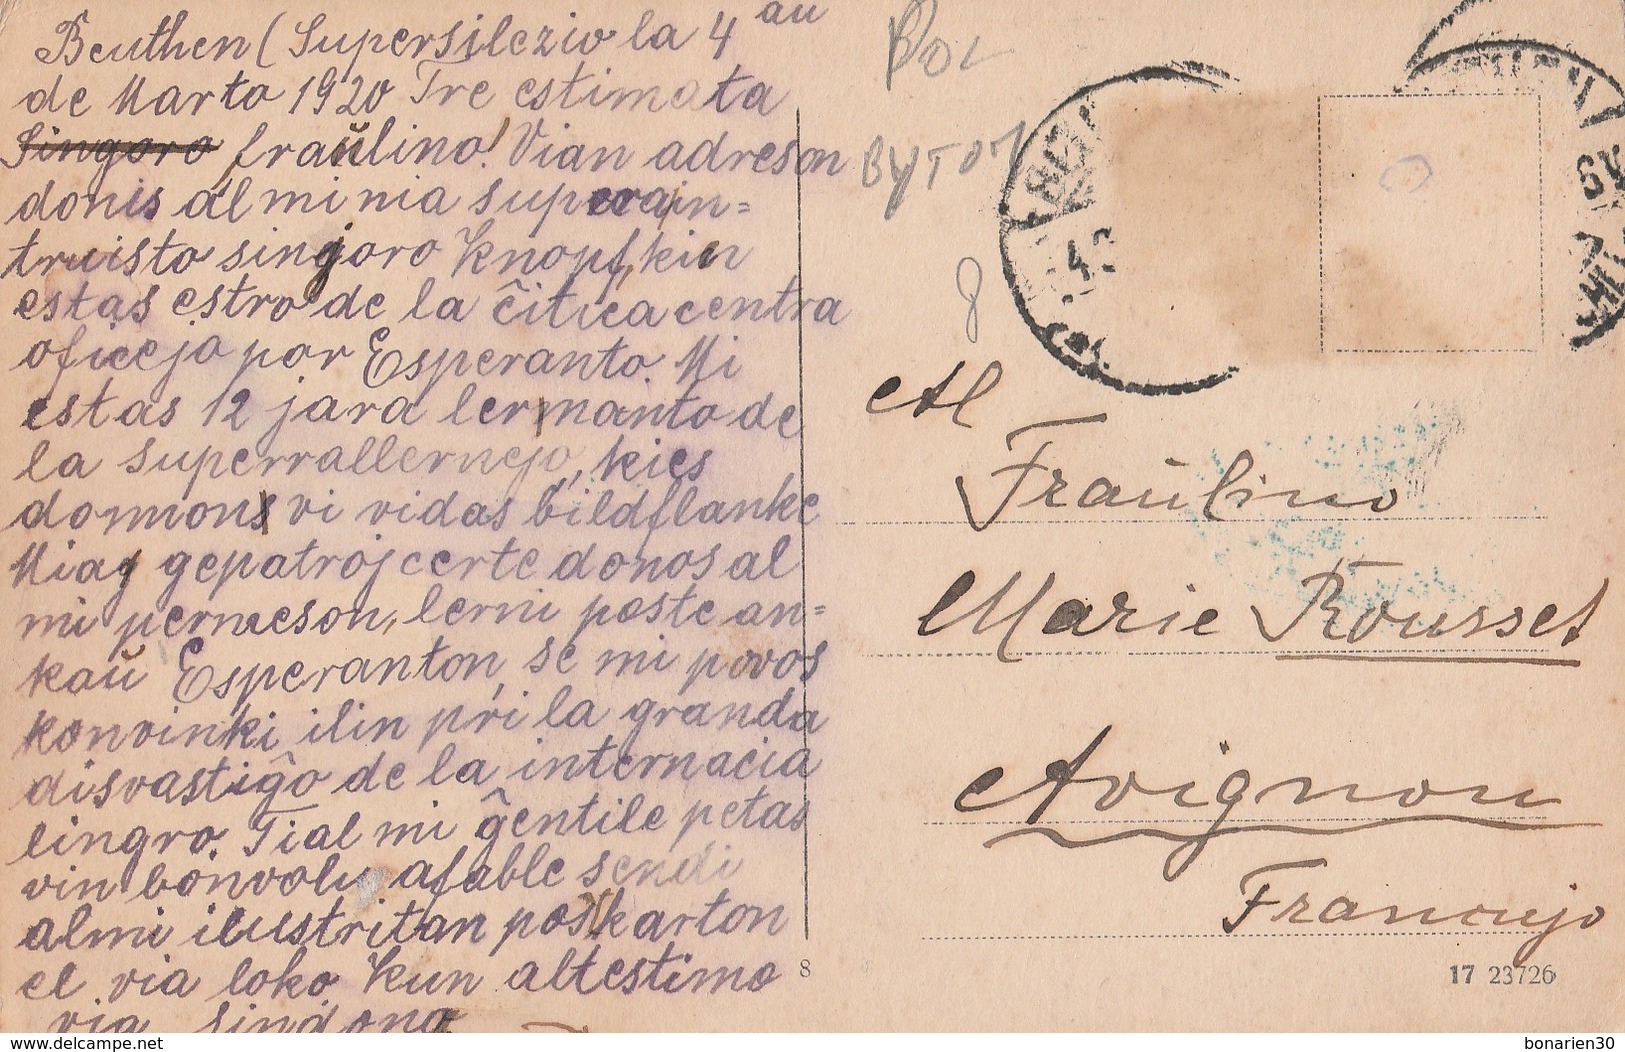 Beuthen (Supersilezio la 4 an
de Marto 1920 Tre estimata
Singoro fraŭlino! Vian adreson
donis al mi nia superain=
truisto sinjoro Knopf, kiu
estas estro de la ĉitiea centra
oficejo por Esperanto. Mi
estas 12 jara lernanto de
la superrallernejo, kies
domon vi vidas bildflanke
Miaj gepatroj certe donos al
mi permeson, lerni poste an=
kaŭ Esperanton, se mi povos
konvinki ilin pri la granda
disvastiĝo de la internacia
lingvo. Tial mi ĝentile petas
vin bonvolu afable sendi
al mi ilustritan poŝtkarton
el via loko Kun altestimo
via sindona
Bol
BYTOM
8
Al
Fraŭlino
Marie Rousset
Avignon
Francujo
8
17 23726
www.delcampe.net
bonarien30